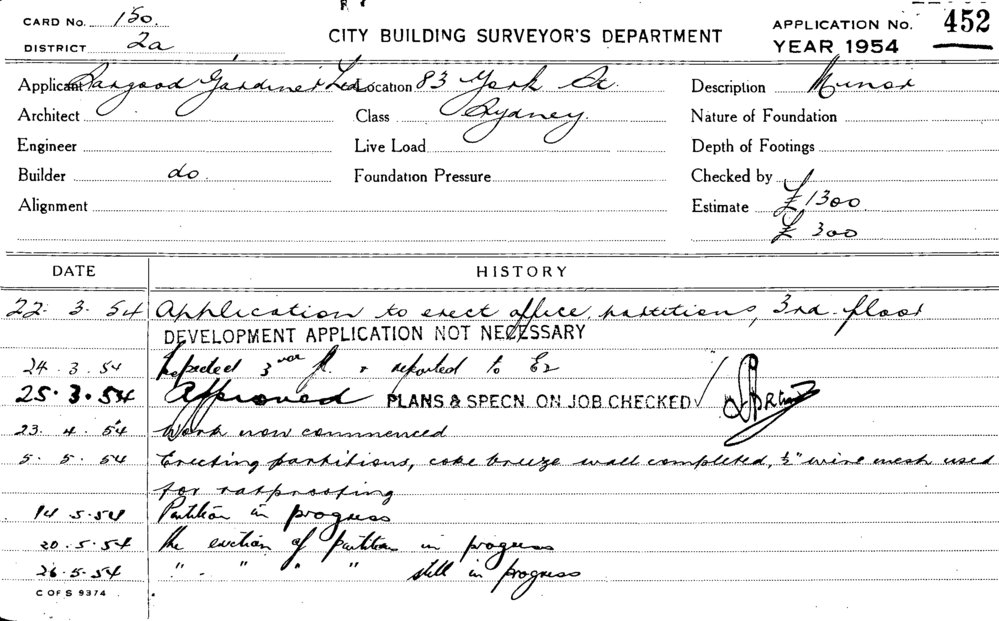 CARD NO. 150.
DISTRICT 2a
CITY BUILDING SURVEYOR'S DEPARTMENT
APPLICATION No. 452
YEAR 1954
Applicant Bargood Gardiner Ltd Location 83 York St. Description Minor
Architect Class Sydney Nature of Foundation
Engineer Live Load Depth of Footings
Builder do. Foundation Pressure Checked by
Alignment Estimate £1300.
£ 300
DATE HISTORY
22. 3. 54 Application to erect office partitions, 3rd floor
DEVELOPMENT APPLICATION NOT NECESSARY
24. 3. 54 Inspected 3rd fl. & reported to E2
25. 3. 54 Approved PLANS & SPECN. ON JOB CHECKED
23. 4. 54 Work now commenced
5. 5. 54 Erecting partitions, coke breeze wall completed, ½" wire mesh used
for ratproofing
14 5. 54 Partition in progress
20. 5. 54 the erection of partition in progress
26. 5. 54 " - " " " still in progress
C OF S 9374